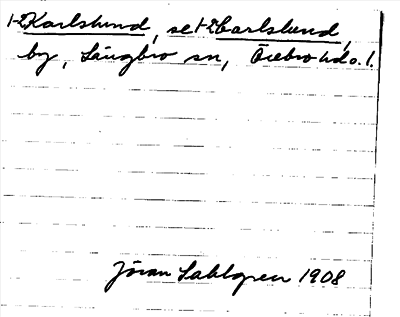 1-2 Karlslund, se 1-2 Carlslund,
by, Långbro sn, Örebro hd o. l.
Jöran Sahlgren 1908